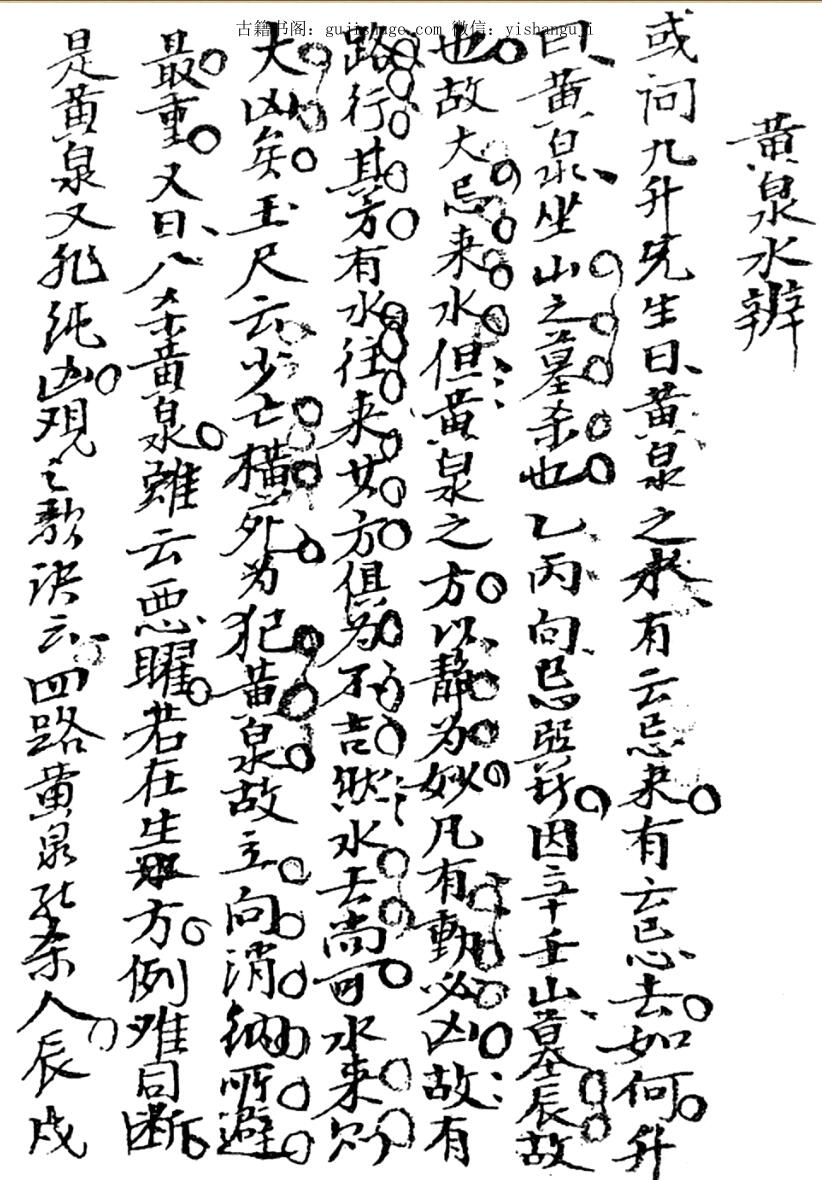 古籍书阁：gujishuge.com 微信：yishanguji
黃泉水辨
或问九升先生曰黃泉之水有云忌来有云忌去如何升
曰黃泉坐山之墓杀也乙丙向忌巽莽因辛壬山墓辰故
也故大忌来水但黃泉之方以静为妙凡有動必凶故有
路行其方有水往来其方俱为不吉然水去尚可水来则
大凶矣玉尺云少亡橫死为犯黃泉故立向消納所避
最重又曰八杀黃泉雖云恶曜若在生方例难同断
是黃泉又非純凶观之歌诀云四路黃泉能杀人辰戍